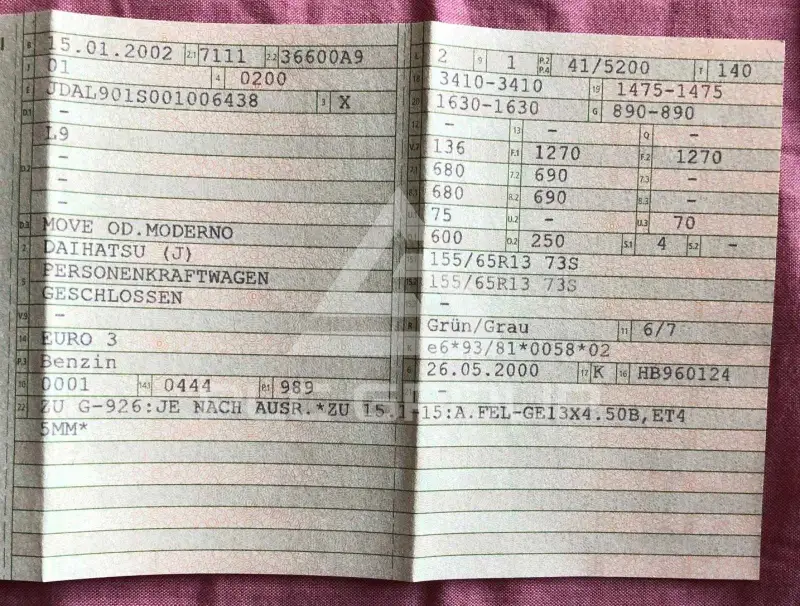 B 15.01.2002 2.1 7111 2.2 36600A9
J 01 4 0200
E JDAL901S001006438 3 X
D.1 -
L9
-
D.2 -
-
D.3 MOVE OD.MODERNO
2 DAIHATSU (J)
5 PERSONENKRAFTWAGEN
GESCHLOSSEN
V.9 -
14 EURO 3
P.3 Benzin
10 0001 14.1 0444 P.1 989
22 ZU G-926:JE NACH AUSR.*ZU 15.1-15:A.FEL-GE13X4.50B,ET4
5MM*
L 2 9 1 P.2 P.4 41/5200 T 140
18 3410-3410 19 1475-1475
20 1630-1630 G 890-890
12 - 13 - Q -
V.7 136 F.1 1270 F.2 1270
7.1 680 7.2 690 7.3 -
8.1 680 8.2 690 8.3 -
U.1 75 U.2 - U.3 70
O.1 600 O.2 250 S.1 4 S.2 -
15.1 155/65R13 73S
15.2 155/65R13 73S
15.3 -
R Grün/Grau 11 6/7
K e6*93/81*0058*02
6 26.05.2000 17 K 16 HB960124
-